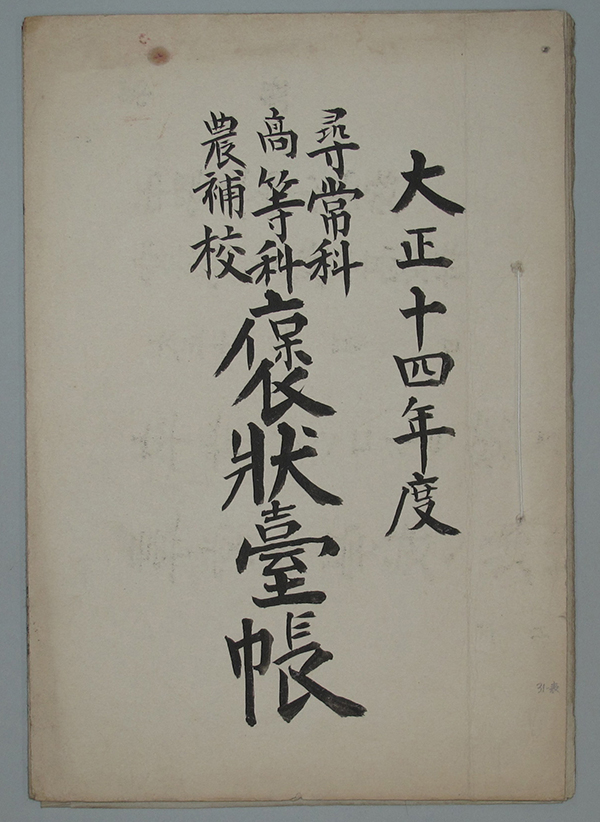 大正十四年度
尋常科
高等科
農補校
褒狀臺帳
31-表